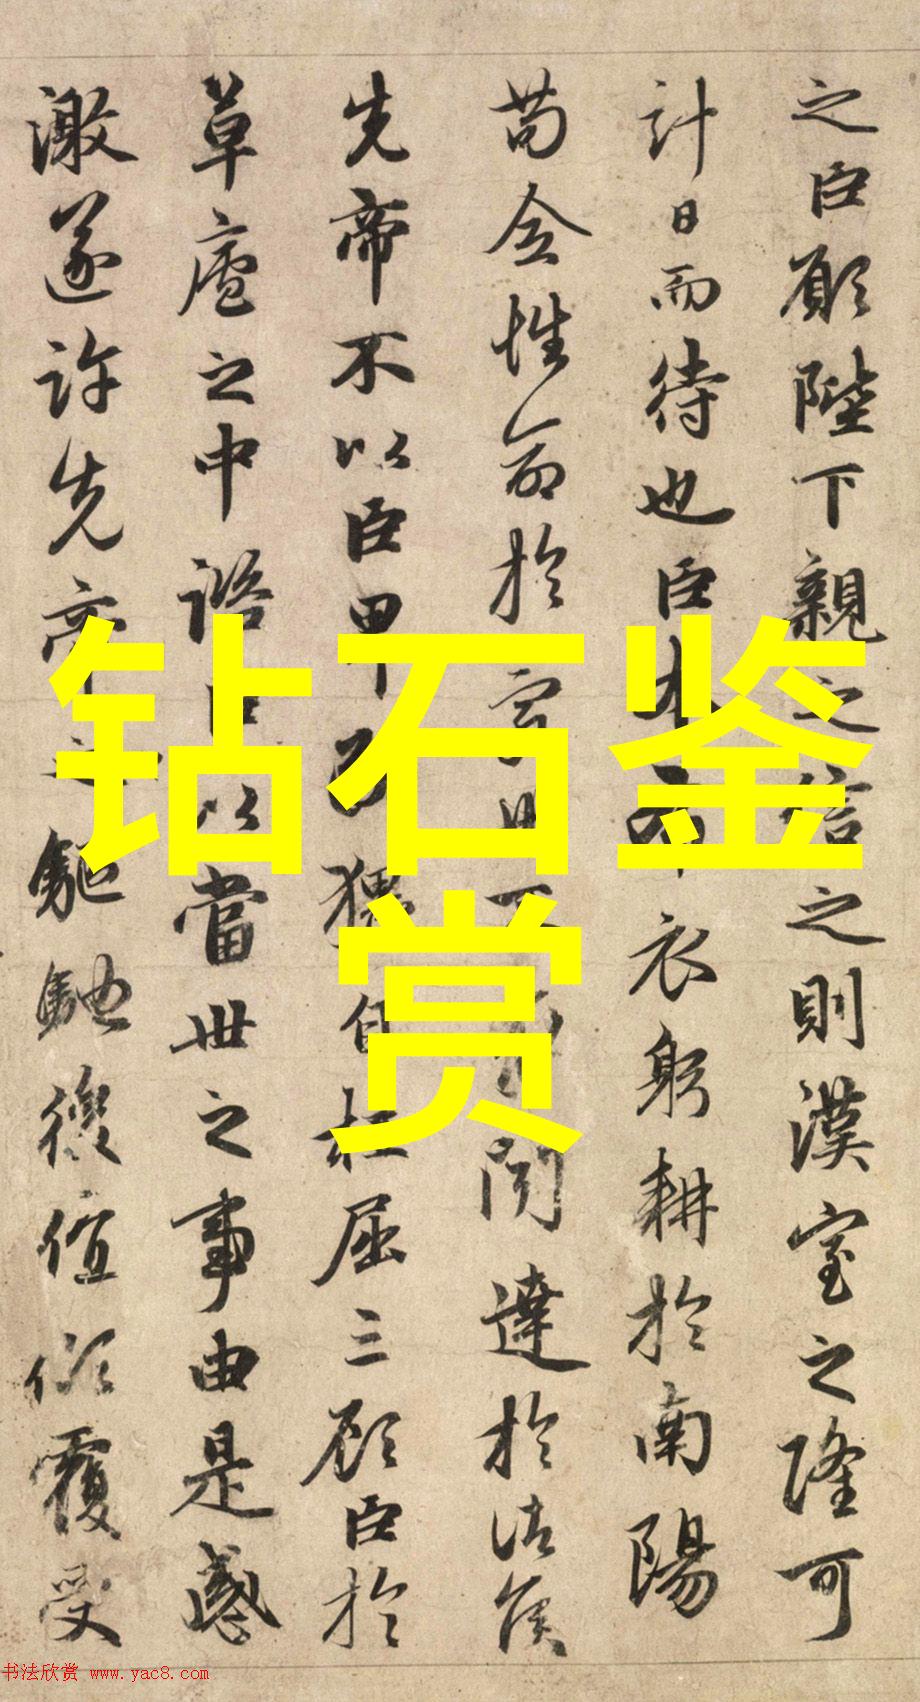 之臣願陛下親之信之則漢室之隆可
計日而待也臣本布衣躬耕於南陽
苟全性命於亂世不求聞達於諸侯
先帝不以臣卑鄙猥自枉屈三顧臣於
草廬之中諮臣以當世之事由是感
激遂許先帝驅馳後值傾覆受
钻石鉴
赏
书法欣赏 www.yac8.com